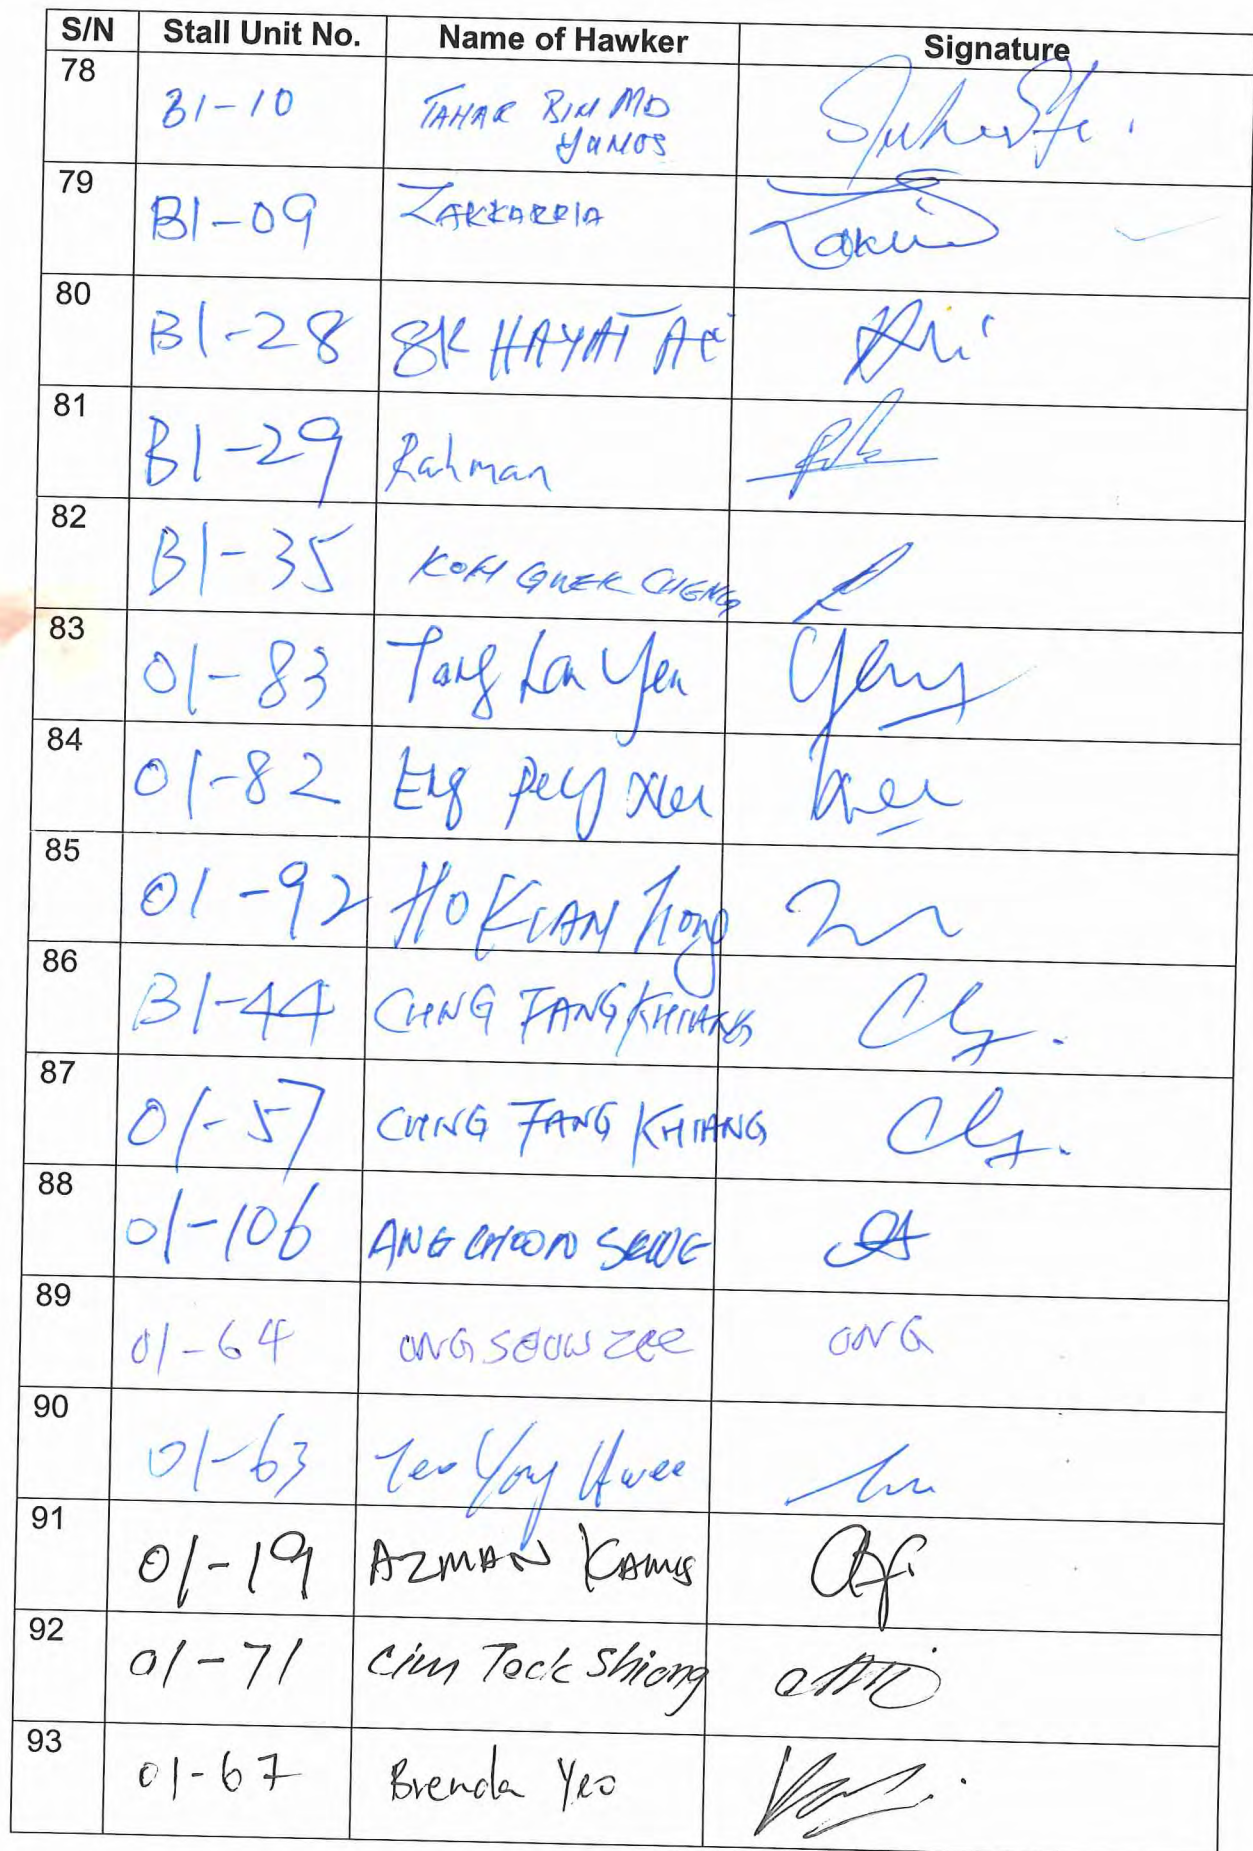 S/N Stall Unit No. Name of Hawker Signature
78 B1-10 TAHAR BIN MD
YUNOS
79 B1-09 ZAKKARRIA
80 B1-28 SK HAYAT
81 B1-29 Rahman
82 B1-35 KOH GUEK CHENG
83 01-83 Tang Lan Yen Yeny
84 01-82 Eng Xuei
85 01-92 HO KIAN Tiong
86 B1-44 CHNG FANG KHIANG
87 01-57 CHNG FANG KHIANG
88 01-106 ANG CHOON
89 01-64 ONG SEOW ZEE ONG
90 01-63 Teo Yong Hwee
91 01-19 AZMAN KAMIS
92 01-71 Lim Teck Shiong
93 01-67 Brenda Yeo